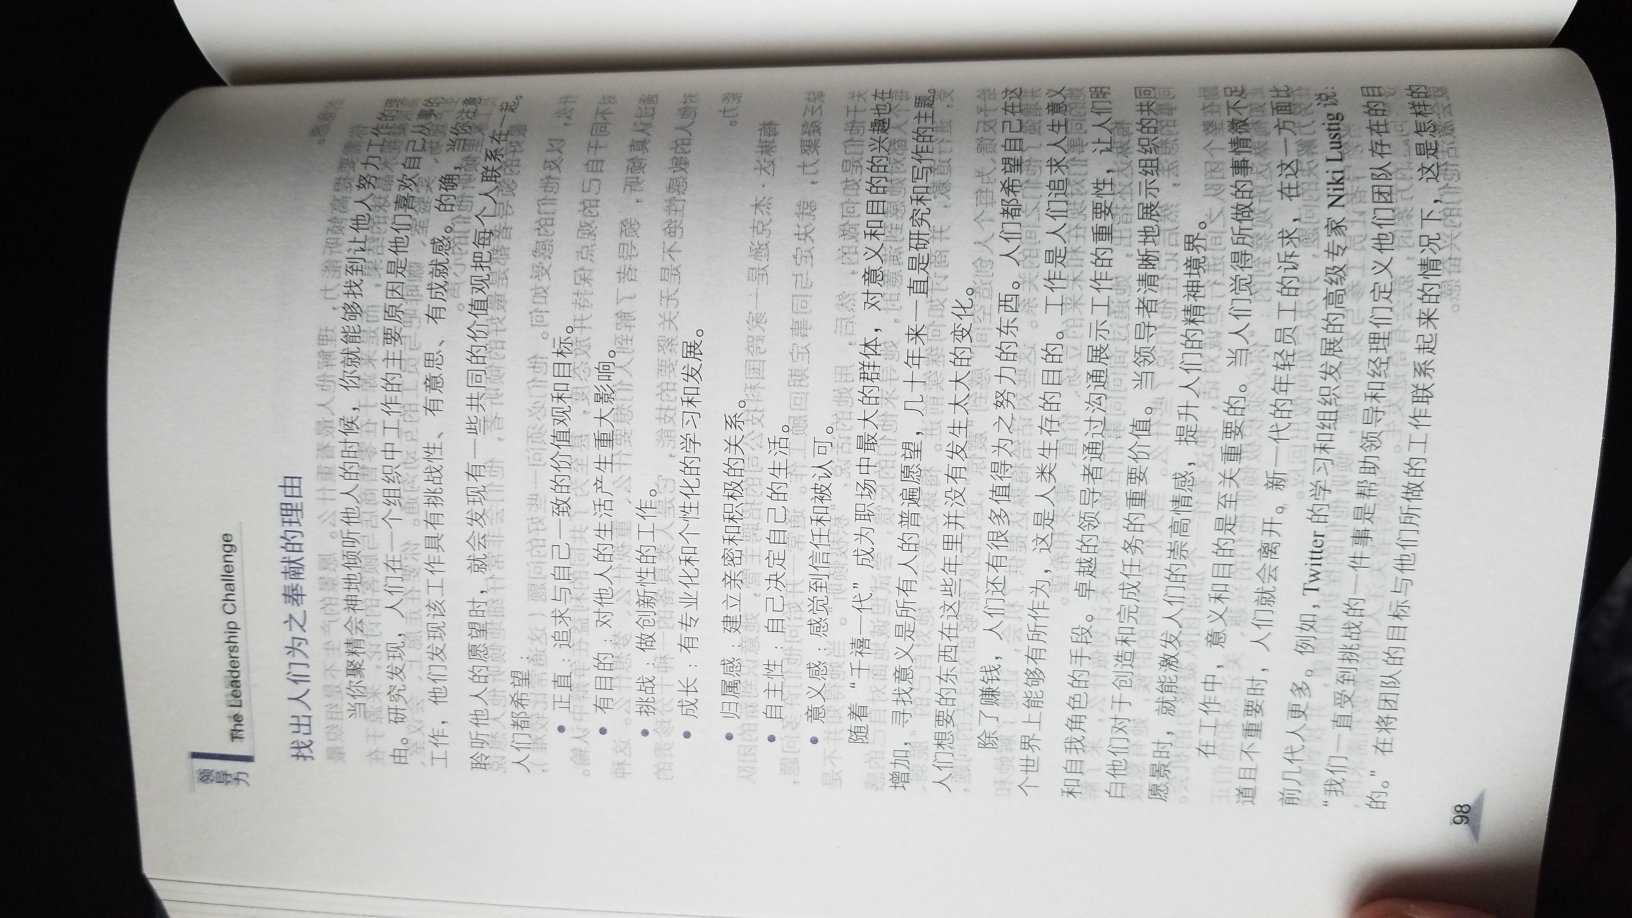 领导力
The Leadership Challenge
找出人们为之奉献的理由
当你聚精会神地倾听他人的时候，你就能够找到让他人努力工作的理
由。研究发现，人们在一个组织中工作的主要原因是他们喜欢自己从事的
工作，他们发现该工作具有挑战性、有意思、有成就感。的确，当你注意
聆听他人的愿望时，就会发现有一些共同的价值观把每个人联系在一起。
人们都希望：
• 正直：追求与自己一致的价值观和目标。
• 有目的：对他人的生活产生重大影响。
• 挑战：做创新性的工作。
• 成长：有专业化和个性化的学习和发展。
• 归属感：建立亲密和积极的关系。
• 自主性：自己决定自己的生活。
• 意义感：感觉到信任和被认可。
随着“千禧一代”成为职场中最大的群体，对意义和目的的兴趣也在
增加，寻找意义是所有人的普遍愿望，几十年来一直是研究和写作的主题。
人们想要的东西在这些年里并没有发生太大的变化。
除了赚钱，人们还有很多值得为之努力的东西。人们都希望自己在这
个世界上能够有所作为，这是人类生存的目的。工作是人们追求人生意义
和自我角色的手段。卓越的领导者通过沟通展示工作的重要性，让人们明
白他们对于创造和完成任务的重要价值。当领导者清晰地展示组织的共同
愿景时，就能激发人们的崇高情感，提升人们的精神境界。
在工作中，意义和目的是至关重要的。当人们觉得所做的事情微不足
道且不重要时，人们就会离开。新一代的年轻员工的诉求，在这一方面比
前几代人更多。例如，Twitter 的学习和组织发展的高级专家 Niki Lustig 说：
“我们一直受到挑战的一件事是帮助领导和经理们定义他们团队存在的目
的。”在将团队的目标与他们所做的工作联系起来的情况下，这是怎样的
98